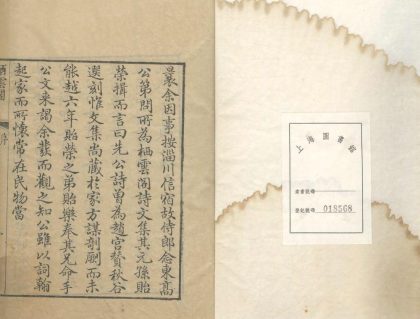 曩余因事按淄川信宿故侍郎念東高
公第問所為栖雲閣詩文集其元孫貽
榮揖而言曰先公詩曾為趙宮贊秋谷
選刻惟文集尚藏於家方謀剞劂而未
能越六年貽榮之弟貽樂奉其兄命手
公文来謁余發而觀之知公雖以詞翰
起家而所懷常在民物當
栖雲閣 序
上海圖書館
索書號碼
登記號碼 018568